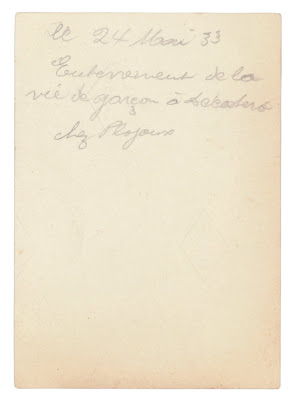 le 24 Mai 33
Enterrement de la
vie de garçon à
chez